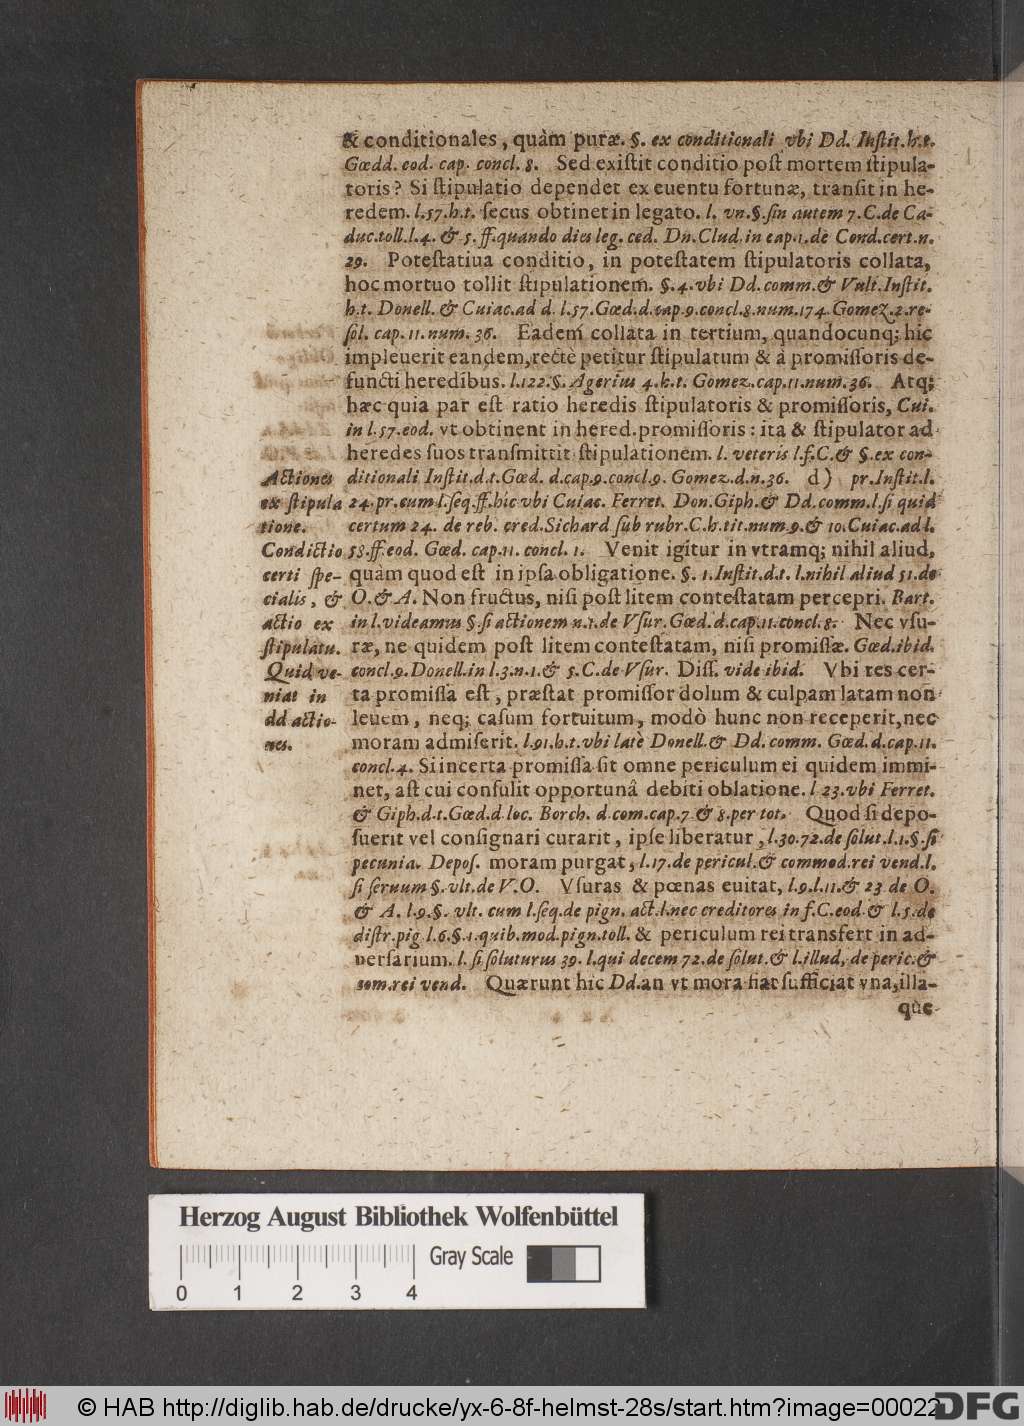 & conditionales, quàm puræ. §. ex conditionali vbi Dd. Instit. h.t.
Gœdd. eod. cap. concl. 8. Sed existit conditio post mortem stipula-
toris? Si stipulatio dependet ex euentu fortunæ, transit in he-
redem. l.57.h.t. secus obtinet in legato. l. vn.§.sin autem 7.C.de Ca-
duc.toll.l.4. & 5. ff.quando dies leg. ced. Dn.Clud.in cap.1.de Cond.cert.n.
29. Potestatiua conditio, in potestatem stipulatoris collata,
hoc mortuo tollit stipulationem. §.4.vbi Dd.comm.& Vult.Instit.
h.t. Donell. & Cuiac.ad d. l.57.Gœd.d.cap.9.concl.8.num.174.Gomez.2.re-
sol. cap.11.num.36. Eadem collata in tertium, quandocunq; hic
impleuerit eandem, rectè petitur stipulatum & à promissoris de-
functi heredibus. l.122.§. Agerius 4.h.t. Gomez.cap.11.num.36. Atq;
hæc quia par est ratio heredis stipulatoris & promissoris, Cui.
in l.57.eod. vt obtinent in hered.promissoris: ita & stipulator ad
heredes suos transmittit stipulationem. l. veteris l.f.C.& §.ex con-
ditionali Instit.d.t.Gœd. d.cap.9.concl.9. Gomez.d.n.36. d) pr.Instit.l.
24.pr.cum l.seq.ff.hic vbi Cuiac. Ferret. Don.Giph.& Dd.comm.l.si quid
certum 24. de reb. cred.Sichard sub rubr.C.h.tit.num.9.& 10.Cuiac.ad l.
58.ff.eod. Gœd. cap.11. concl. 1. Venit igitur in vtramq; nihil aliud,
quàm quod est in ipsa obligatione. §. 1.Instit.d.t. l.nihil aliud 51.de
O.& A. Non fructus, nisi post litem contestatam percepri. Bart.
in l.videamus §.si actionem n.1.de Vsur.Gœd.d.cap.11.concl.8. Nec vsu-
ræ, ne quidem post litem contestatam, nisi promissæ. Gœd.ibid.
concl.9.Donell.in l.3.n.1.& 5.C.de Vsur. Diss. vide ibid. Vbi res cer-
ta promissa est, præstat promissor dolum & culpam latam non
leuem, neq; casum fortuitum, modò hunc non receperit, nec
moram admiserit. l.91.h.t.vbi latè Donell.& Dd.comm. Gœd.d.cap.11.
concl.4. Si incerta promissa sit omne periculum ei quidem immi-
net, ast cui consulit opportunâ debiti oblatione. l 23.vbi Ferret.
& Giph.d.t.Gœd.d loc. Borch. d com.cap.7 & 8.per tot. Quod si depo-
suerit vel consignari curarit, ipse liberatur, l.30.72.de solut.l.1.§.si
pecunia. Depos. moram purgat, l.17.de pericul.& commod.rei vend.l.
si seruum §.vlt.de V.O. Vsuras & pœnas euitat, l.9.l.11.& 23 de O.
& A. l.9.§. vlt. cum l.seq.de pign. act.l.nec creditores in f.C.eod.& l.5.de
distr.pig l.6.§.1.quib.mod.pign.toll. & periculum rei transfert in ad-
uersarium. l. si soluturus 39. l.qui decem 72.de solut.& l.illud, de peric.&
com.rei vend. Quærunt hic Dd.an vt mora fiat sufficiat vna, illa-
què
Actiones
ex stipula
tione.
Condictio
certi spe-
cialis, &
actio ex
stipulatu.
Quid ve-
niat in
dd actio-
nes.
Herzog August Bibliothek Wolfenbüttel
Gray Scale
0 1 2 3 4
© HAB http://diglib.hab.de/drucke/yx-6-8f-helmst-28s/start.htm?image=00022
DFG